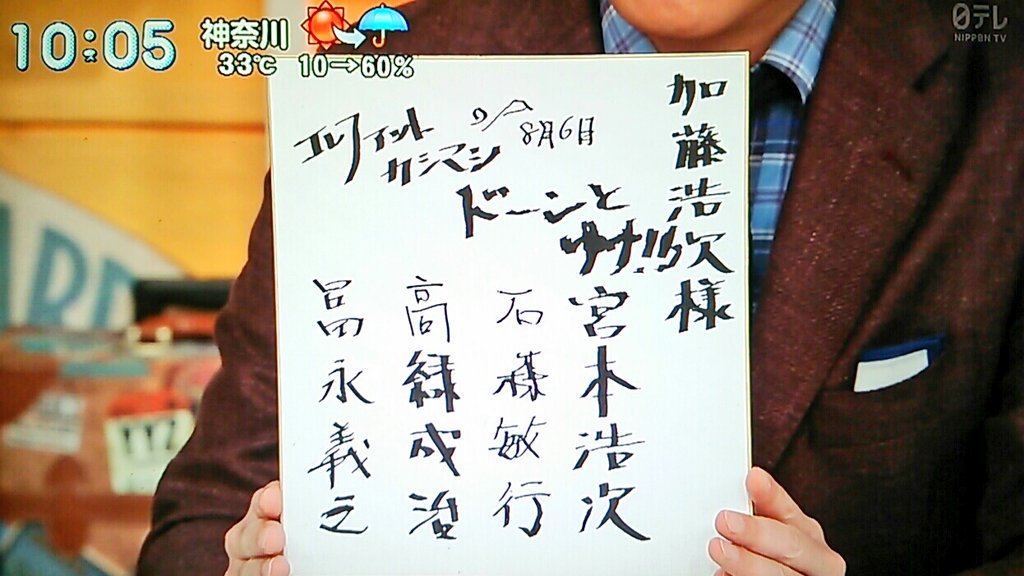 10:05
神奈川
33℃ 10→60%
日テレ
NIPPON TV
加藤浩次様
8月6日
エレファント
カシマシ
ドーンと
行け!!
宮本浩次
石森敏行
高緑成治
冨永義之